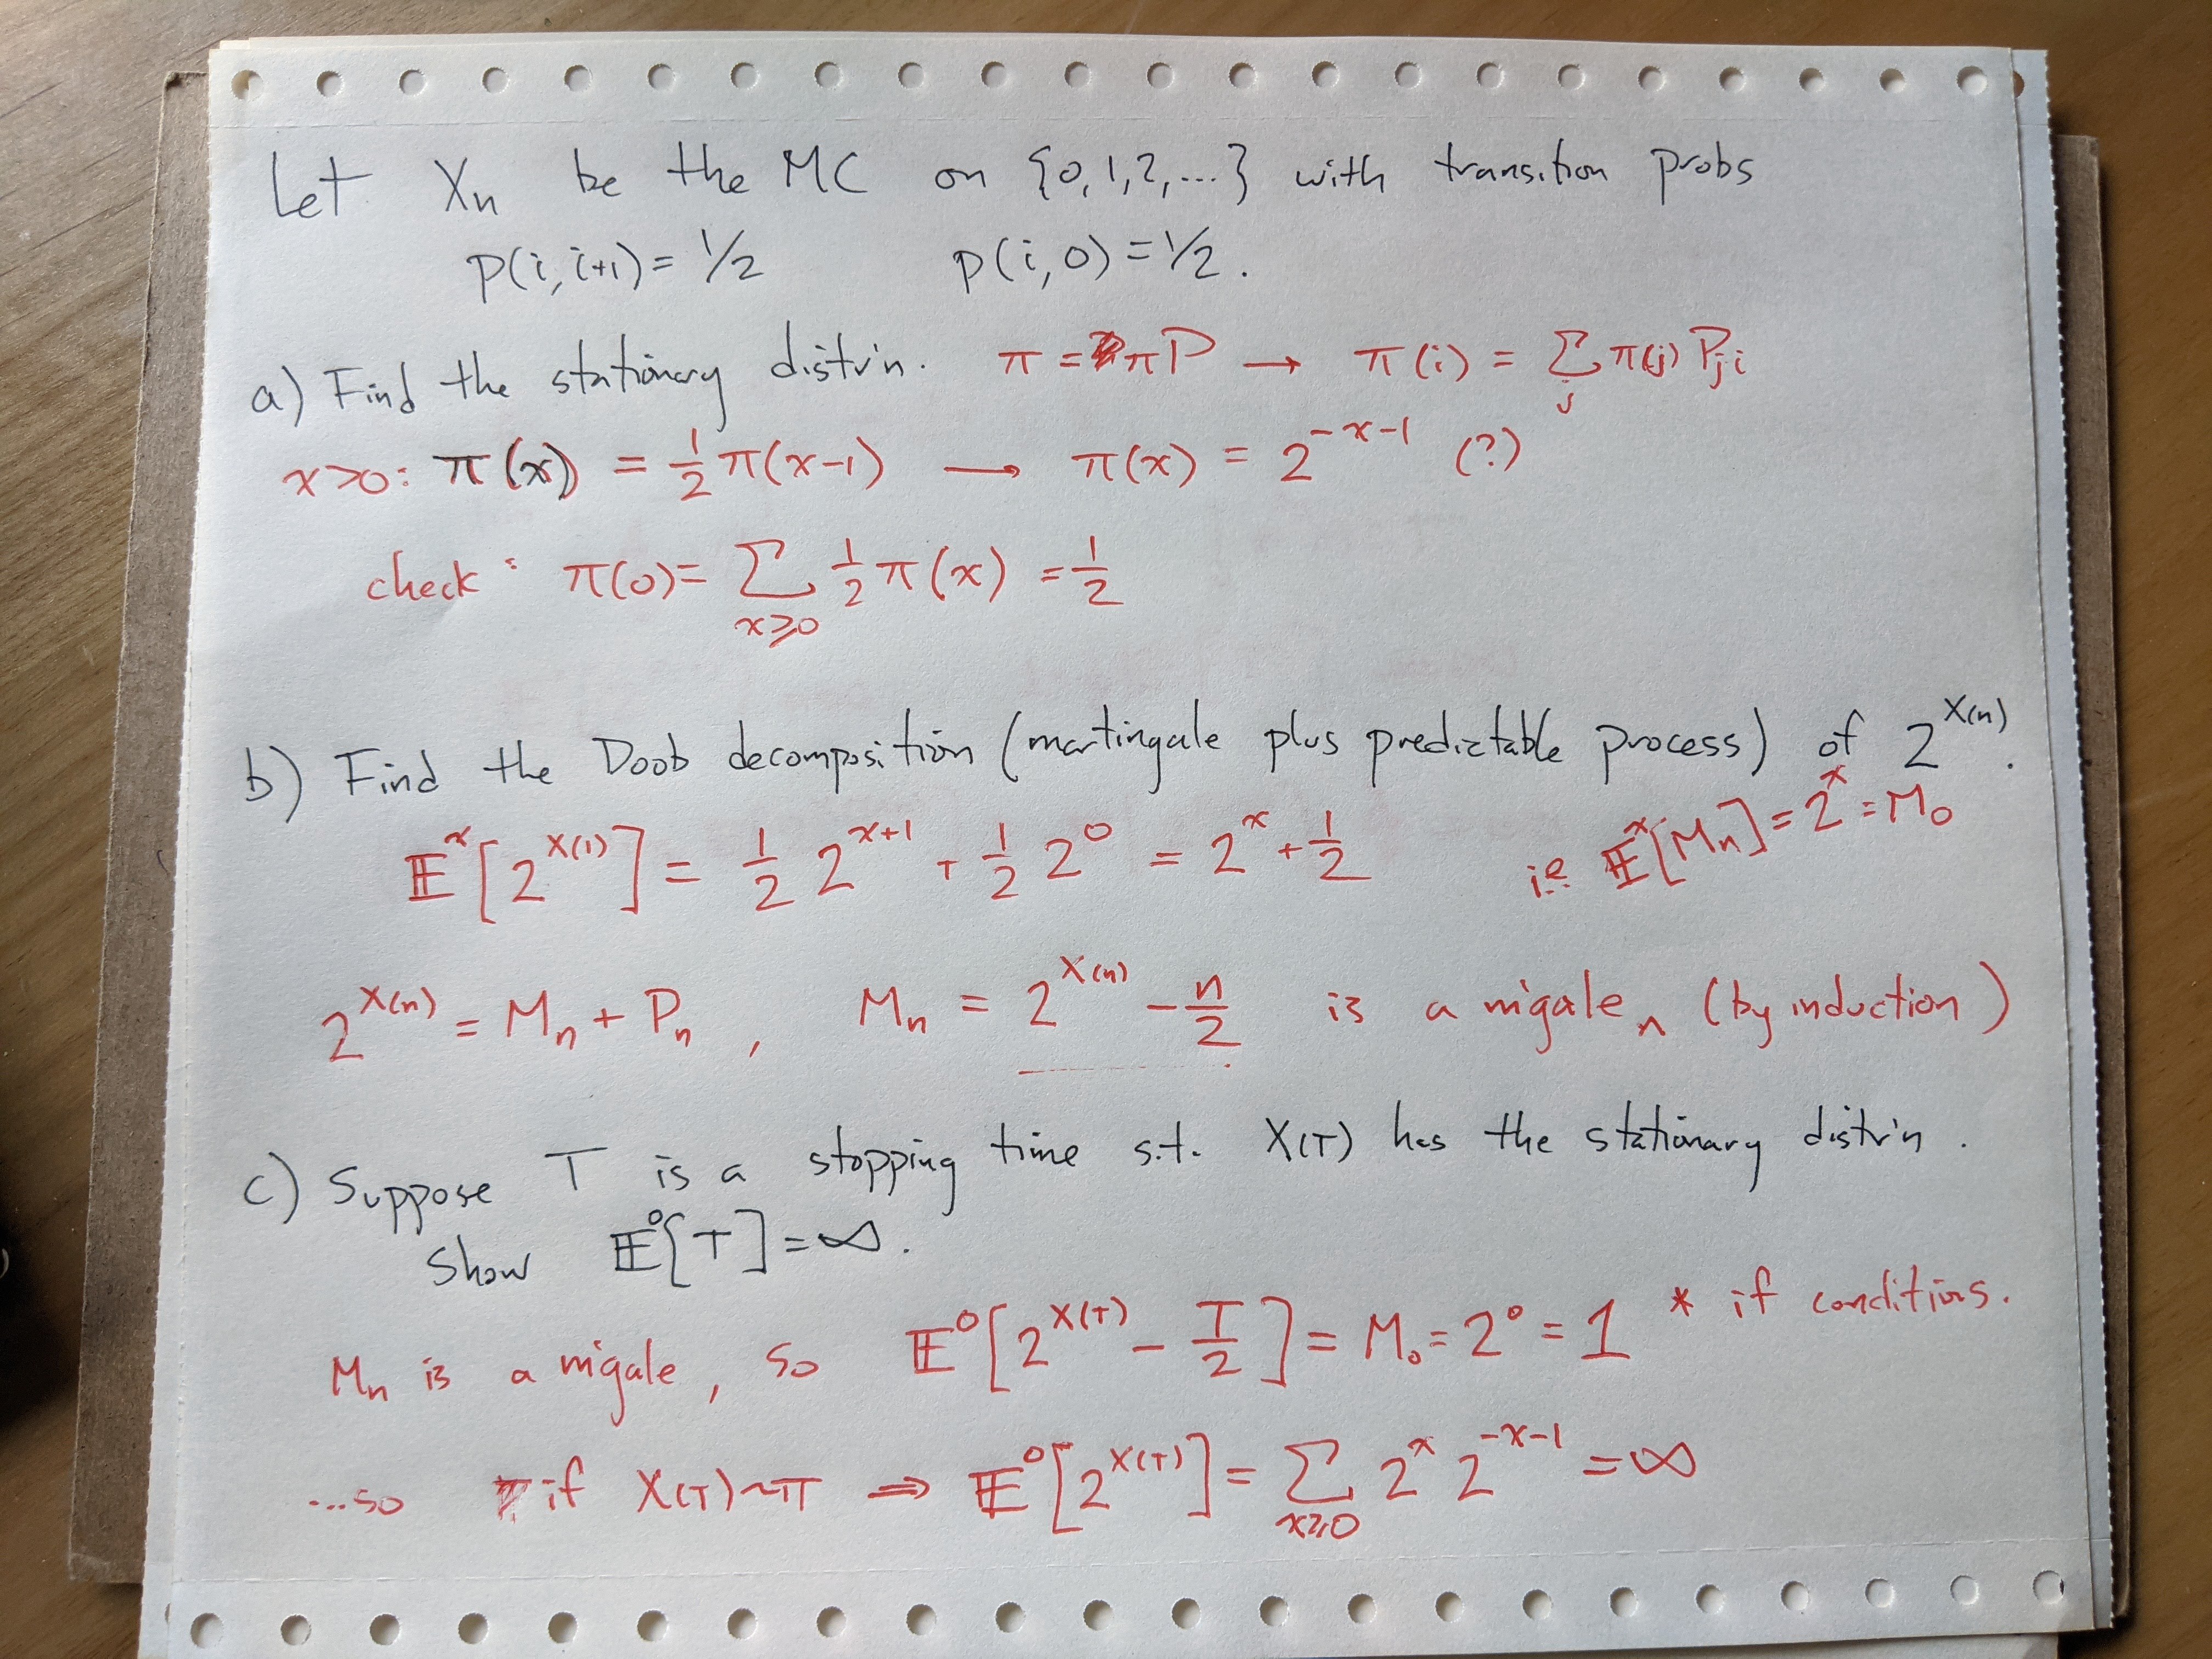 Let Xₙ be the MC on {0,1,2,...} with transition probs
p(i,i+1) = 1/2 p(i,0) = 1/2.
a) Find the stationary distr'n. π = πP → π(i) = Σⱼ π(j) Pⱼᵢ
x>0: π(x) = 1/2 π(x-1) → π(x) = 2^(-x-1) (?)
check: π(0) = Σ_(x≥0) 1/2 π(x) = 1/2
b) Find the Doob decomposition (martingale plus predictable process) of 2^X(n).
𝔼^x[2^X(1)] = 1/2 2^(x+1) + 1/2 2^0 = 2^x + 1/2 i.e. 𝔼^x[Mₙ] = 2^x = M₀
2^X(n) = Mₙ + Pₙ, Mₙ = 2^X(n) - n/2 is a m'gale (by induction)
c) Suppose T is a stopping time s.t. X(T) has the stationary distr'n.
Show 𝔼^0[T] = ∞.
Mₙ is a m'gale, so 𝔼^0[2^X(T) - T/2] = M₀ = 2^0 = 1 * if conditions.
...so if X(T)~π ⇒ 𝔼^0[2^X(T)] = Σ_(x≥0) 2^x 2^(-x-1) = ∞